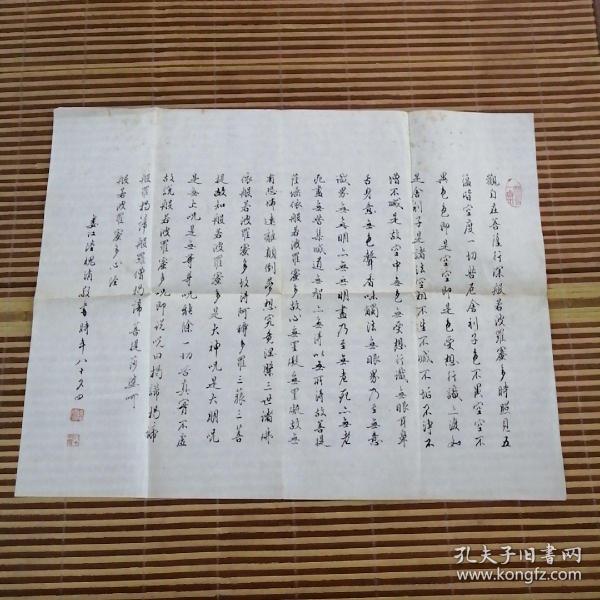 觀自在菩薩行深般若波羅蜜多時照見五
蘊皆空度一切苦厄舍利子色不異空空不
異色色即是空空即是色受想行識亦復如
是舍利子是諸法空相不生不滅不垢不淨不
增不減是故空中無色無受想行識無眼耳鼻
舌身意無色聲香味觸法無眼界乃至無意
識界無無明亦無無明盡乃至無老死亦無老
死盡無苦集滅道無智亦無得以無所得故菩提
薩埵依般若波羅蜜多故心無罣礙無罣礙故無
有恐怖遠離顛倒夢想究竟涅槃三世諸佛
依般若波羅蜜多故得阿耨多羅三藐三菩
提故知般若波羅蜜多是大神咒是大明咒
是無上咒是無等等咒能除一切苦真實不虛
故說般若波羅蜜多咒即說咒曰揭諦揭諦
般羅揭諦般羅僧揭諦菩提薩婆訶
般若波羅蜜多心經
婁江 清敬書時年八十又四
孔夫子旧书网
www.kongfz.com